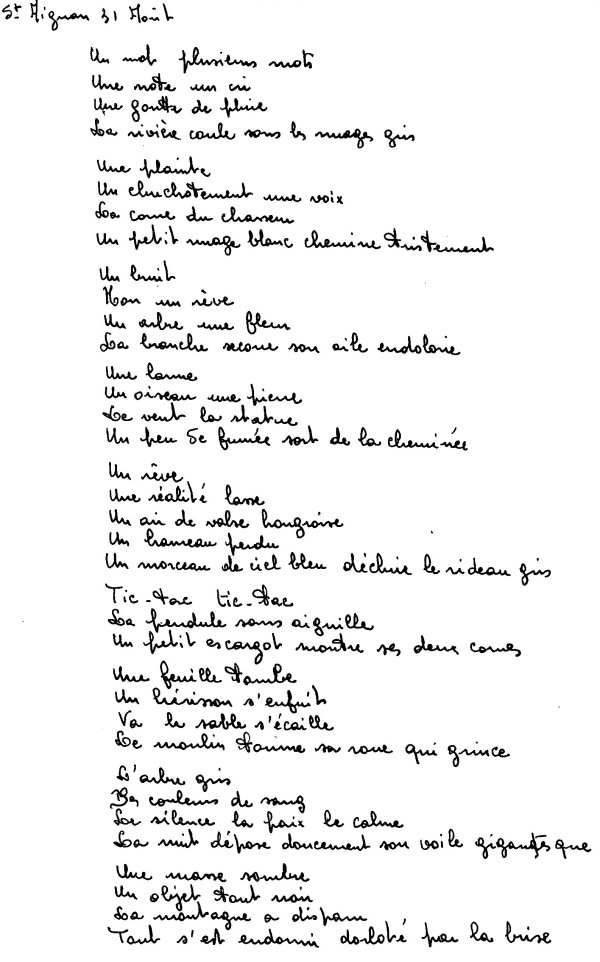 St Aignan 31 Août
Un mot plusieurs mots
Une note un cri
Une goutte de pluie
La rivière coule sous les nuages gris
Une plainte
Un chuchotement une voix
La corne du chasseur
Un petit nuage blanc chemine tristement
Un bruit
Mon un rêve
Un arbre une fleur
La branche secoue son aile endolorie
Une larme
Un oiseau une pierre
Le vent la statue
Un peu de fumée sort de la cheminée
Un rêve
Une réalité lasse
Un air de valse hongroise
Un hameau perdu
Un morceau de ciel bleu déchire le rideau gris
Tic-tac tic-tac
La pendule sans aiguille
Un petit escargot montre ses deux cornes
Une feuille tombe
Un hérisson s'enfuit
Va le sable s'écaille
Le moulin tourne sa roue qui grince
L'arbre gris
Des couleurs de sang
Le silence la paix le calme
La nuit dépose doucement son voile gigantesque
Une masse sombre
Un objet tout noir
La montagne a disparu
Tout s'est endormi dorloté par la brise